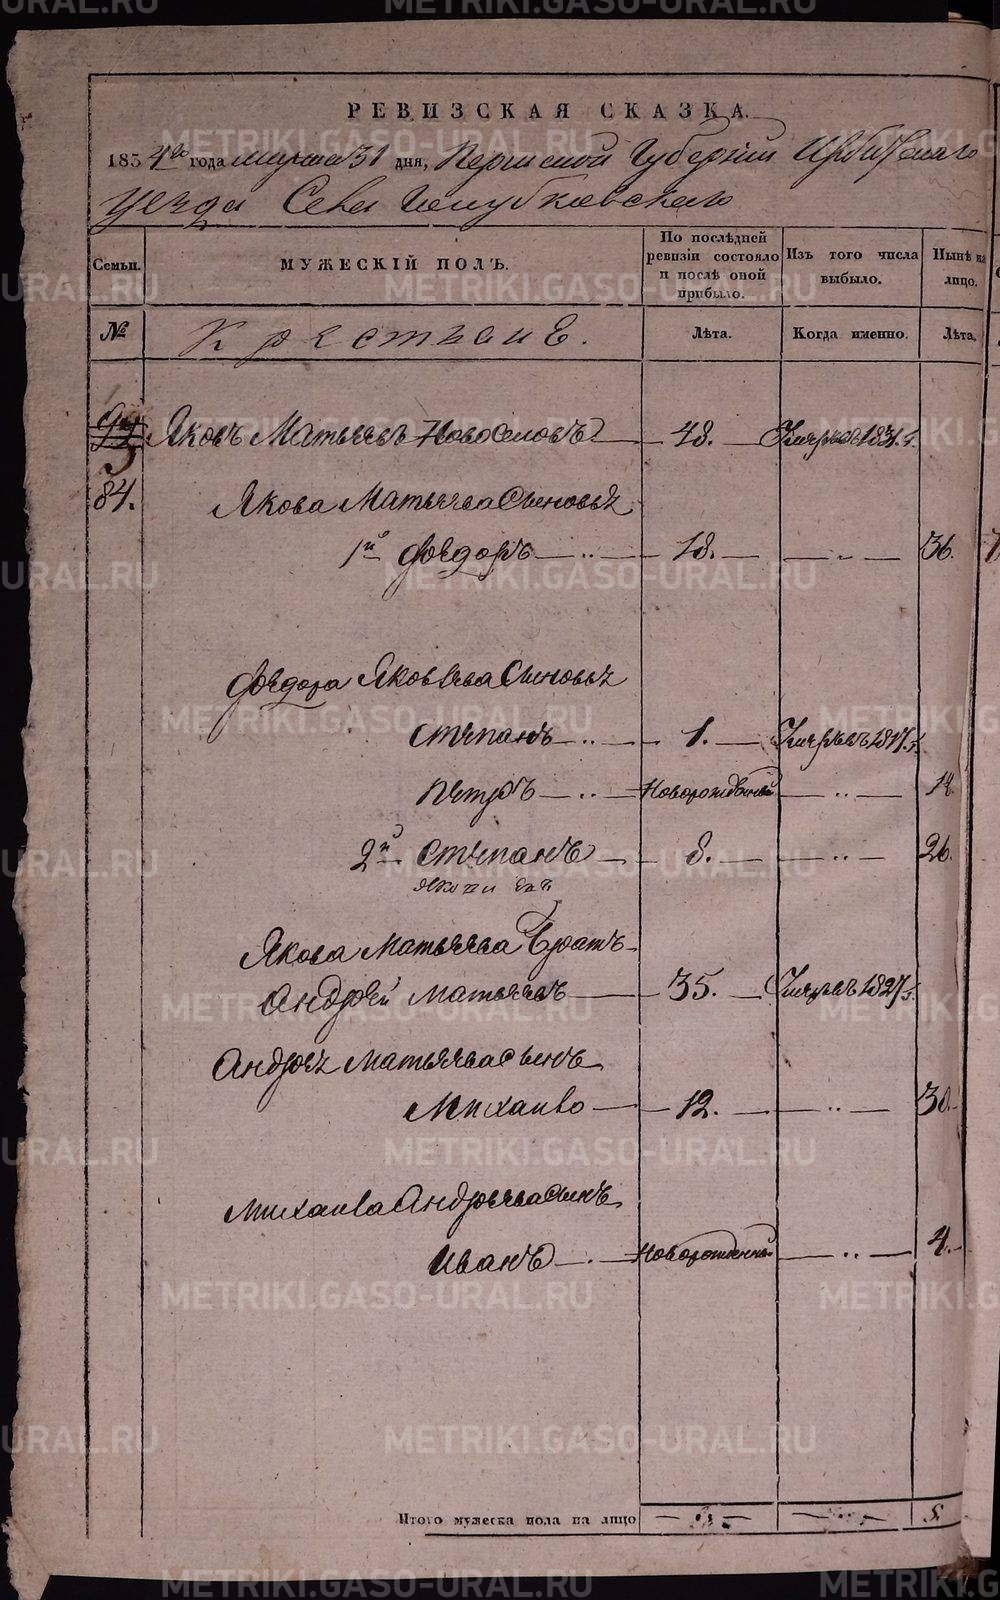 РЕВИЗСКАЯ СКАЗКА.
1854го года марта 31 дня, Пермской Губернии Ирбитскаго
уезда Села Голубковскаго
Семьи. МУЖЕСКІЙ ПОЛЪ. По послѣдней ревизіи состояло и послѣ оной прибыло. Изъ того числа выбыло. Нынѣ на лицо.
№ Крестьяне. Лѣта. Когда именно. Лѣта.
Яковъ Матвеевъ Новоселовъ 48.
84. Якова Матвеева Сыновья
1й Федоръ 18. 36.
Федора Яковлева Сыновья
Степанъ 1. Умеръ въ 1847 г.
Петръ Новорожденный 14
2й Степанъ 8. 26.
Якова Матвеева Братъ
Андрей Матвеевъ 35. Умеръ въ 1827 г.
Андрея Матвеева сынъ
Михаило 12. 30.
Михаила Андреева сынъ
Иванъ Новорожденный 4.
Итого мужеска пола на лицо 5.
METRIKI.GASO-URAL.RU